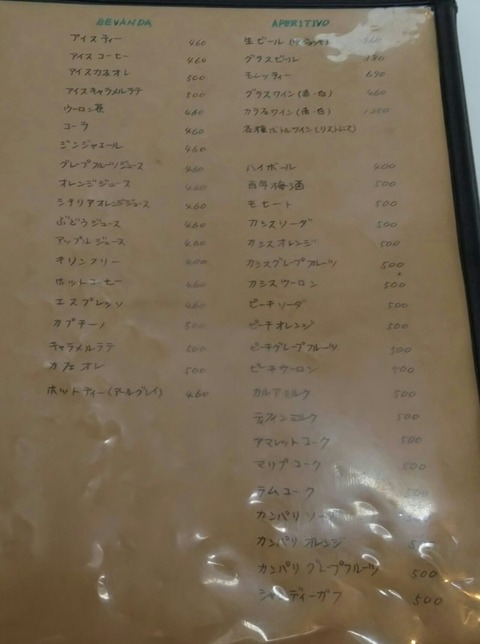 BEVANDA
アイスティー 460
アイスコーヒー 460
アイスカフェオレ 500
アイスキャラメルラテ 500
ウーロン茶 460
コーラ 460
ジンジャエール 460
グレープフルーツジュース 460
オレンジジュース 460
シチリアオレンジジュース 460
ぶどうジュース 460
アップルジュース 460
キリンフリー 400
ホットコーヒー 460
エスプレッソ 460
カプチーノ 500
キャラメルラテ 500
カフェオレ 500
ホットティー(アールグレイ) 460
APERITIVO
生ビール
グラスビール
モレッティー 690
グラスワイン(赤・白) 460
カラフワイン(赤・白)
各種ボトルワイン(リストにて)
ハイボール 400
百年梅酒 500
モヒート 500
カシスソーダ 500
カシスオレンジ 500
カシスグレープフルーツ 500
カシスウーロン 500
ピーチソーダ 500
ピーチオレンジ 500
ピーチグレープフルーツ 500
ピーチウーロン 500
カルアミルク 500
ティフィンミルク 500
アマレットコーク 500
マリブコーク 500
ラムコーク 500
カンパリソーダ
カンパリオレンジ
カンパリグレープフルーツ 500
シャンディーガフ 500